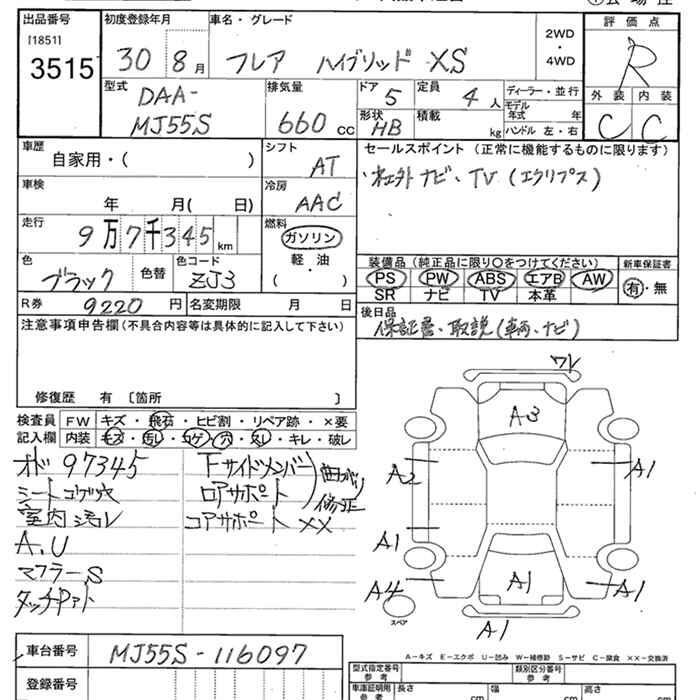 出品番号 初度登録年月 車名・グレード 評価点
[1851]
3515 30 8月 フレア ハイブリッド XS 2WD・4WD R
型式 排気量 ドア 定員 ディーラー・並行 外装 内装
DAA- 5 4人 モデル年式 年
MJ55S 660cc 形状 HB 積載 kg ハンドル 左・右 C C
車歴 シフト セールスポイント (正常に機能するものに限ります)
自家用・( ) AT 社外ナビ・TV (エクリプス)
車検 冷房
年 月( 日) AAC
走行 燃料
9万7千345km ガソリン
軽・油
( )
色 色替 色コード 装備品 (純正品に限り○をつけてください) 新車保証書
ブラック ZJ3 PS PW ABS エアB AW 有・無
SR ナビ TV 本革
R券 9220円 名変期限 月 日 後日品
保証書、取説(車両、ナビ)
注意事項申告欄(不具合内容等は具体的に記入して下さい)
修復歴 有 〔箇所 〕
検査員 FW キズ・飛石・ヒビ割・リペア跡・×要
記入欄 内装 キズ・汚レ・コゲ・穴・スレ・キレ・破レ
オド 97345
シートコゲ穴
室内汚レ
A、U
マフラーS
タッチPアト
Fサイドメンバー
ロアサポート
曲がり修正
コアサポート ××
ワレ
A3
A2 A1
A1
A4 A1 A1
スペア
A1
A-キズ E-エクボ U-凹み W-補修跡 S-サビ C-腐食 ××-交換済
車台番号 MJ55S-116097
登録番号
型式指定番号 参考 類別区分番号 参考
車庫証明用 参考 長さ cm 幅 cm 高さ cm